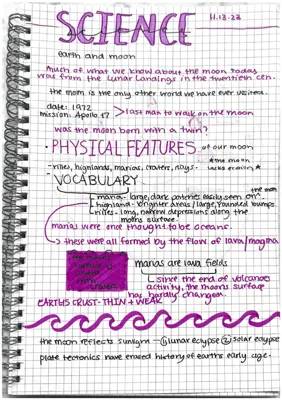 SCIENCE 11.13.23
earth and moon
Much of what we know about the moon today
was from the lunar landings in the twentieth cen.
the moon is the only other world we have ever visited.
date: 1972
mission: Apollo 17 > last man to walk on the moon
was the moon born with a twin?
• PHYSICAL FEATURES of our moon
- rilles, highlands, marias, craters, rays - * the moon
lacks erosion *
- VOCABULARY
maria - large, dark patches easily seen on the moon
highland - brighter areas / large, rounded bumps
rilles - long, narrow depressions along the
moons surface
marias were once thought to be oceans.
→ these were all formed by the flow of lava/magma
marias are lava fields
since the end of volcanoe
activity, the moons surface
has hardly changed.
EARTHS CRUST - THIN + WEAK
the moon reflects sunlight - ① lunar eclypse ② solar eclypse
plate tectonics have erased history of earths early age.